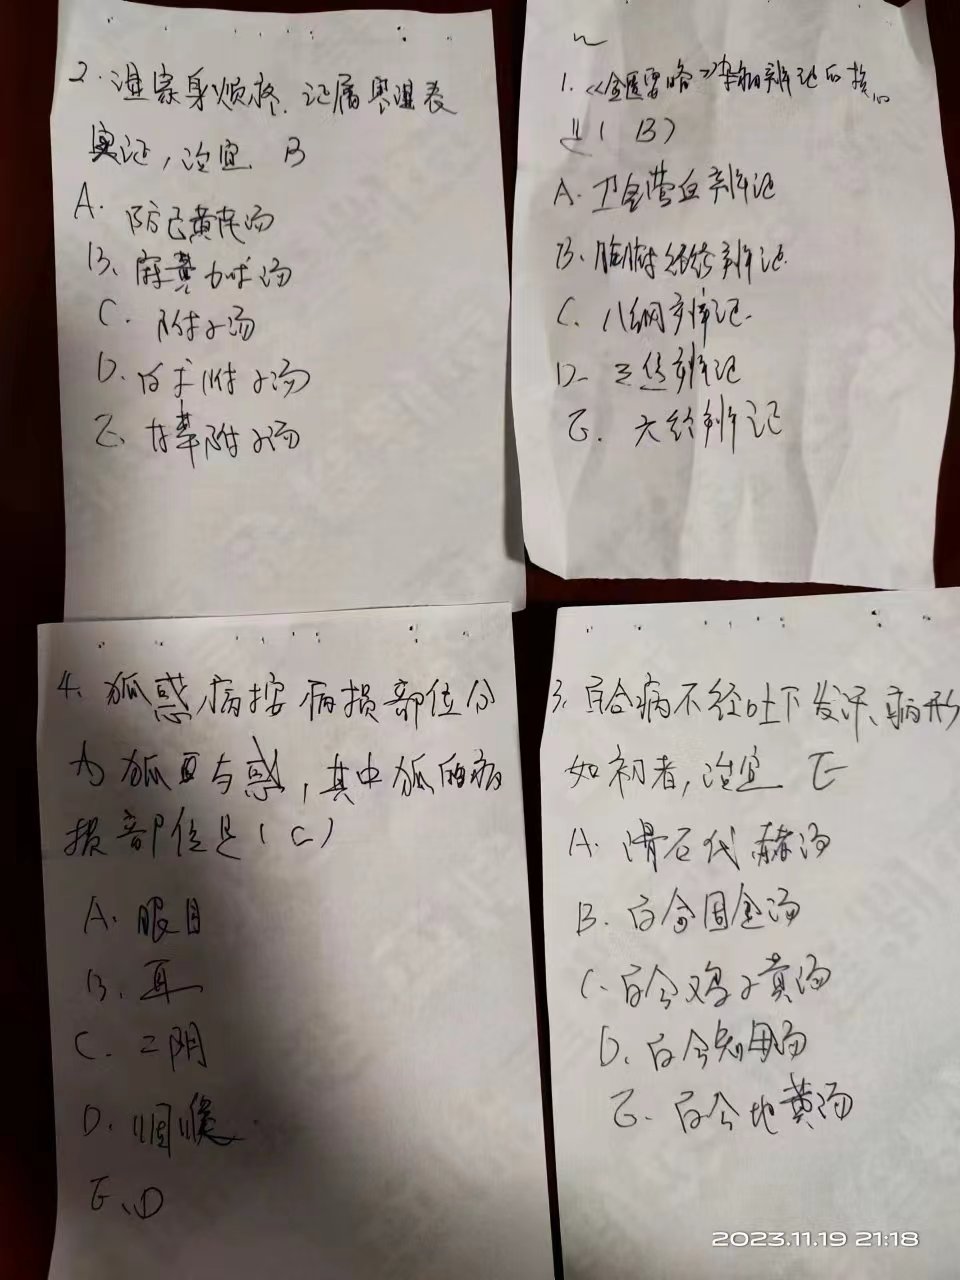 1.《金匮要略》杂病辨证的核心
是( B)
A. 卫气营血辨证
B. 脏腑经络辨证
C. 八纲辨证
D. 三焦辨证
E. 六经辨证
2. 湿家身烦疼，证属寒湿表
实证，治宜 B
A. 防己黄芪汤
B. 麻黄加术汤
C. 附子汤
D. 白术附子汤
E. 甘草附子汤
3. 百合病不经吐下发汗、病形
如初者，治宜 E
A. 滑石代赭汤
B. 百合固金汤
C. 百合鸡子黄汤
D. 百合知母汤
E. 百合地黄汤
4. 狐惑病按病损部位分
为狐与惑，其中狐的病
损部位是( C )
A. 眼目
B. 耳
C. 二阴
D. 咽喉
E. 口
2023.11.19 21:18